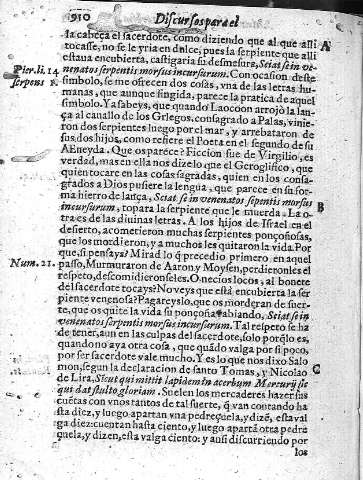 910 Discursos para el
la cabeça el sacerdote, como diziendo que al que alli
tocasse, no se le yria en dulce, pues la serpiente que alli
estaua encubierta, castigaria su desmesura, Sciat se in ve-
nenatos serpentis morsus incursurum. Con ocasion deste
simbolo, se me ofrecen dos cosas, vna de las letras hu-
manas, que aunque fingida, parece la pratica de aquel
simbolo. Ya sabeys, que quando Laocoon arrojò la lan-
ça al cauallo de los Griegos, consagrado a Palas, vinie-
ron dos serpientes luego por el mar, y arrebataron de
sus dos hijos, como refiere el Poeta en el segundo de su
AEneyda. Que os parece? Ficcion fue de Virgilio, es
verdad, mas en ella nos dize lo que el Geroglifico, que
quien tocare en las cosas sagradas, quien en los consa-
grados a Dios pusiere la lengua, que parece en su for-
ma hierro de lança, Sciat se in venenatos sepentis morsus
incursurum, topara la serpiente que le muerda. La o-
tra es de las diuinas letras. A los hijos de Israel en el
desierto, acometieron muchas serpientes ponçoñosas,
que los mordieron, y a muchos les quitaron la vida. Por
que, si pensays? Mirad lo q̃ precedio primero en aquel
passo, Murmuraron de Aaron y Moysen, perdieronles el
respeto, descomidieronseles. O necios locos, al bonete
del sacerdote tocays? No veys que està encubierta la ser
piente venenosa? Pagareyslo, que os morderan de suer-
te, que os quite la vida su ponçoña rabiando, Sciat se in
venenatos serpentis morsus incursurum. Tal respeto se ha
de tener, aun en las culpas del sacerdote, solo porq̃ lo es,
quando no aya otra cosa, que quãdo valga por si poco,
por ser sacerdote vale mucho. Y es lo que nos dixo Salo
mon, segun la declaracion de santo Tomas, y Nicolao
de Lira, Sicut qui mittit lapidem in acerbum Mercurij, sic
qui dat stulto gloriam. Suelen los mercaderes hazer sus
cuẽtas con vnos tantos de tal suerte, q̃ van contando ha
sta diez, y luego apartan vna pedreçuela, y dizẽ, esta val
ga diez: cuentan hasta ciento, y luego apartã otra pedre
çuela, y dizen, esta valga ciento: y aussi discurriendo por
los
A
Pier. li. 14.
serpens
B
Num. 21.
C